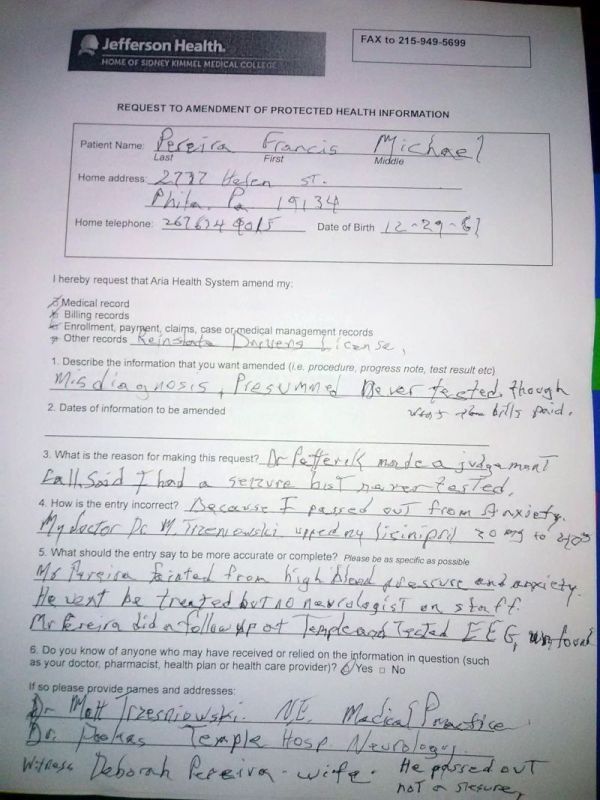 Jefferson Health.
HOME OF SIDNEY KIMMEL MEDICAL COLLEGE
FAX to 215-949-5699
REQUEST TO AMENDMENT OF PROTECTED HEALTH INFORMATION
Patient Name: Pereira Francis Michael
Last First Middle
Home address: 2777 Helen St.
Phila. Pa 19134
Home telephone: 267624 9015 Date of Birth 12-29-61
I hereby request that Aria Health System amend my:
Medical record
Billing records
Enrollment, payment, claims, case or medical management records
Other records Reinstate Drivers License,
1. Describe the information that you want amended (i.e. procedure, progress note, test result etc)
Misdiagnosis, Presummed Never tested, though
bills paid.
2. Dates of information to be amended
3. What is the reason for making this request? Dr Petterik made a judgemant
Call, Said I had a seizure but never tested,
4. How is the entry incorrect? Because I passed out from Anxiety.
My doctor Dr M. Trzeniowski upped my lisinipril 20 mg to 40
5. What should the entry say to be more accurate or complete? Please be as specific as possible
Mr Pereira fainted from high blood pressure and anxiety.
He went be treated but no neurologist on staff.
Mr Pereira did a follow up at Temple and Tested EEG, unfound
6. Do you know of anyone who may have received or relied on the information in question (such
as your doctor, pharmacist, health plan or health care provider)? Yes No
If so please provide names and addresses:
Dr Matt Trzesniowski. N.E. Medical Practice
Dr. Temple Hosp. Neurology.
Witness Deborah Pereira - wife. He passed out
not a siesure,